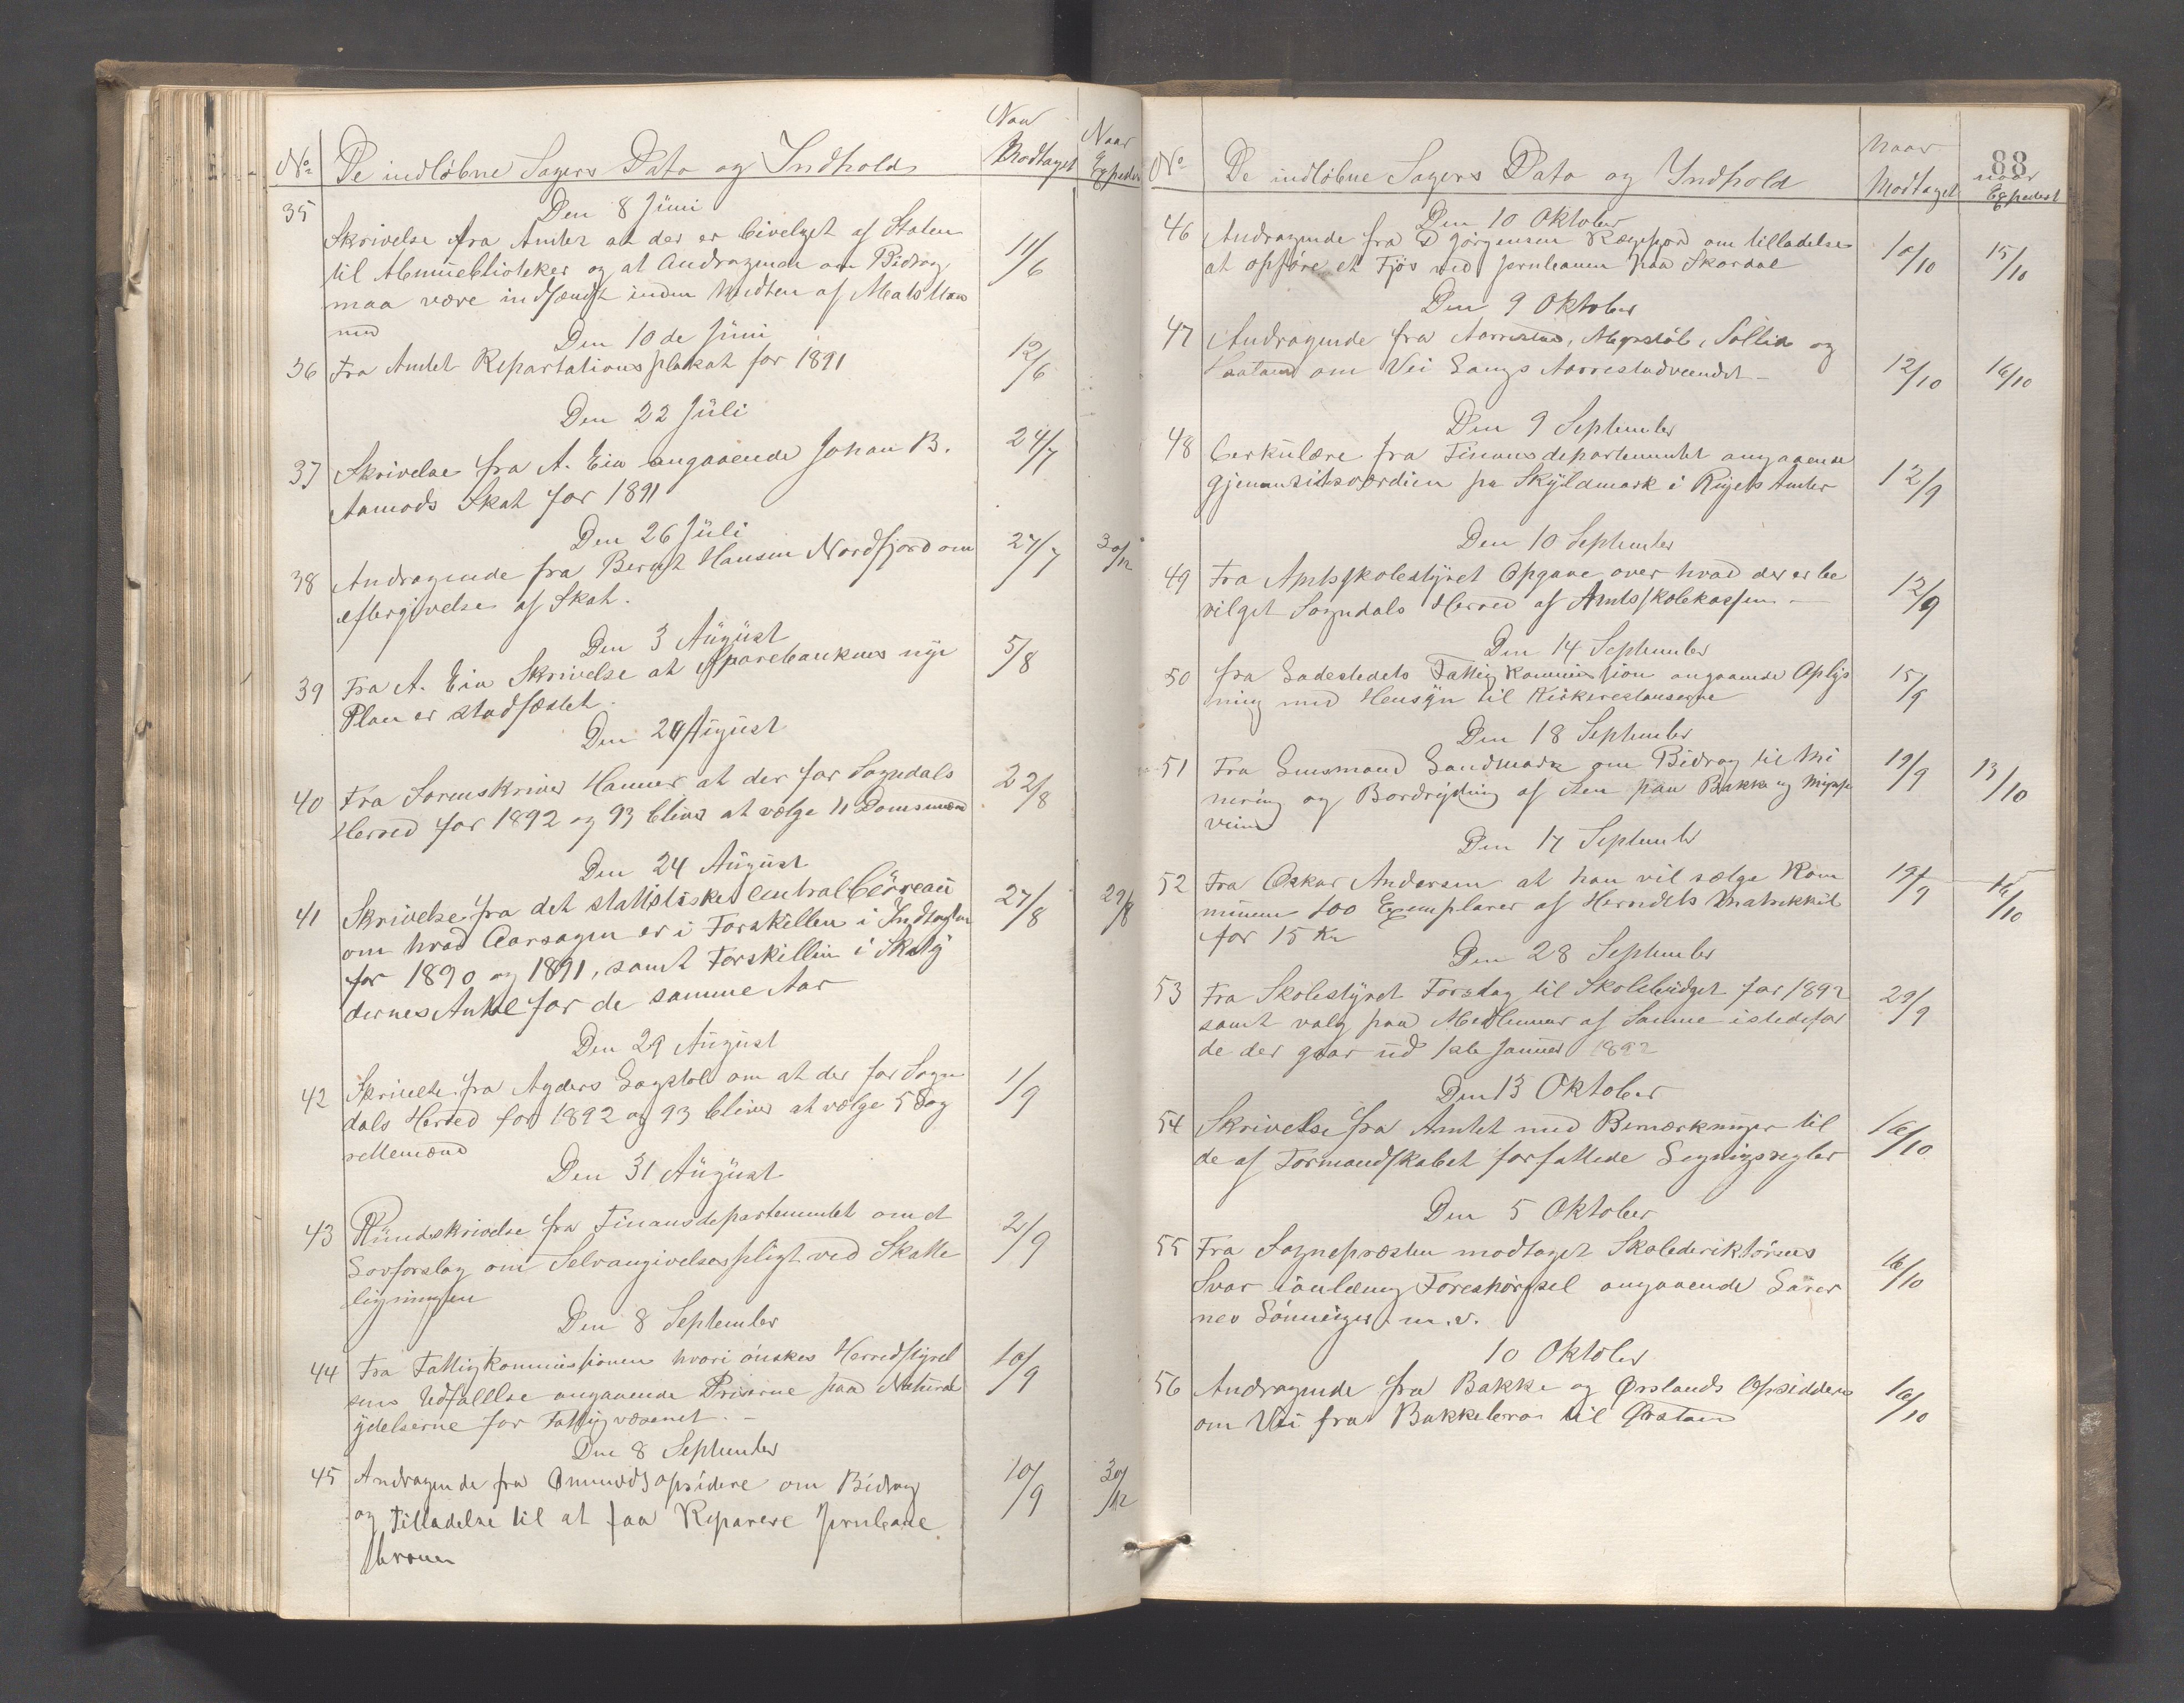 No
De indløbne Sagers Dato og Indhold
Naar Modtaget
Naar Expedert
Den 8 Juni
35 Skrivelse fra Amtet at der er bivelget af Staten
til Almuebliotheker og at Andragende om Bidrag
maa være indsendt inden Midten af
ned
11/6
Den 10 de Juni
36 Fra Amtet Repartationsplakat for 1891
12/6
Den 22 Juli
37 Skrivelse fra A. Eia angaaende Johan B.
Aamods Skat for 1891
24/7
Den 26 Juli
38 Andragende fra Bernt Hansen Nordfjord om
eftergivelse af Skat.
27/7
30/12
Den 3 August
39 Fra A. Eia Skrivelse at Sparebankens nye
Plan er stadfæstet.
5/8
Den 20 August
40 Fra Sorenskriver Hanner at der for Sogndals
Herred for 1892 og 93 blive at vælge 11 Domsmænd
22/8
Den 24 August
41 Skrivelse fra det statistiske Central Büreau
om hvad Aarsagen er i Forskillen i Indtægten
for 1890 og 1891, samt Forskillen i Skaty
dernes Antal for de samme Aar
27/8
29/8
Den 29 August
42 Skrivelse fra Agders Lagstol om at der for Sogn
dals Herred for 1892 og 93 bliver at vælge 5 Lag
rettemænd
1/9
Den 31 August
43 Rundskrivelse fra Finansdepartementet om et
Lovforslag om Selvangivelsespligt ved Skatte
ligningen
2/9
Den 8 September
44 Fra Fattigkommissionen hvori ønskes Herredstyrel
sens Udtallelse angaaende Priserne paa Natural
ydelserne for Fattigvæsenet. –
10/9
Den 8 September
45 Andragende fra Ømundsopsidere om Bidrag
og Tilladelse til at faa Reparere Jernbane
broen
10/9
30/12
88
No
De indløbne Sagers Dato og Indhold
Naar Modtaget
naar Expedert
Den 10 Oktober
46 Andragende fra D Jørgensen Rægefjord om tilladelse
at opføre et Fjøs ved Jernbanen paa Skardal
10/10
15/10
Den 9 Oktober
47 Andragende fra Aarrestad, Mydstøl, Sollia og
om Vei Langs Aarrestadvandet –
12/10
16/10
Den 9 September
48 Cerkulære fra Finansdepartementet angaaende
Gjennemsitsværdien pr Skyldmark i Rigets Amter
12/9
Den 10 September
49 Fra Amtsskolestyret Opgave over hvad der er be
vilget Sogndals Herred af Amtsskolekassen. –
12/9
Den 14 September
50 fra Ladestedets Fattigkommission angaaende Oplys
ning med Hensyn til
15/9
Den 18 September
51 Fra Lensmand Sandmark om Bidrag til Mi
nering og Bordrydning af Sten paa Bakke og
veien
19/9
13/10
Den 17 September
52 Fra Oskar Andersen at han vil sælge Kom
munen 100 Exemplarer af Herredets Matrikkel
for 15 Kr
19/9
16/10
Den 28 September
53 Fra Skolestyret Forslag til Skolebudget for 1892
samt valg paa Medlemmer af Samme istedetfor
de der gaar ud 1ste Januar 1892
29/9
Den 13 Oktober
54 Skrivelse fra Amtet med Bemærkninger til
de af Formandskabet forfattede Legningsregler
16/10
Den 5 Oktober
55 Fra Sognepræsten modtaget Skolederiktørens
Svar ianledning Forespørgsel angaaende Lærer
nes Lønninger m.v.
16/10
10 Oktober
56 Andragende fra Bakke og Ørslands Opsiddere
om Vei fra Bakkebro til Ørsland
16/10